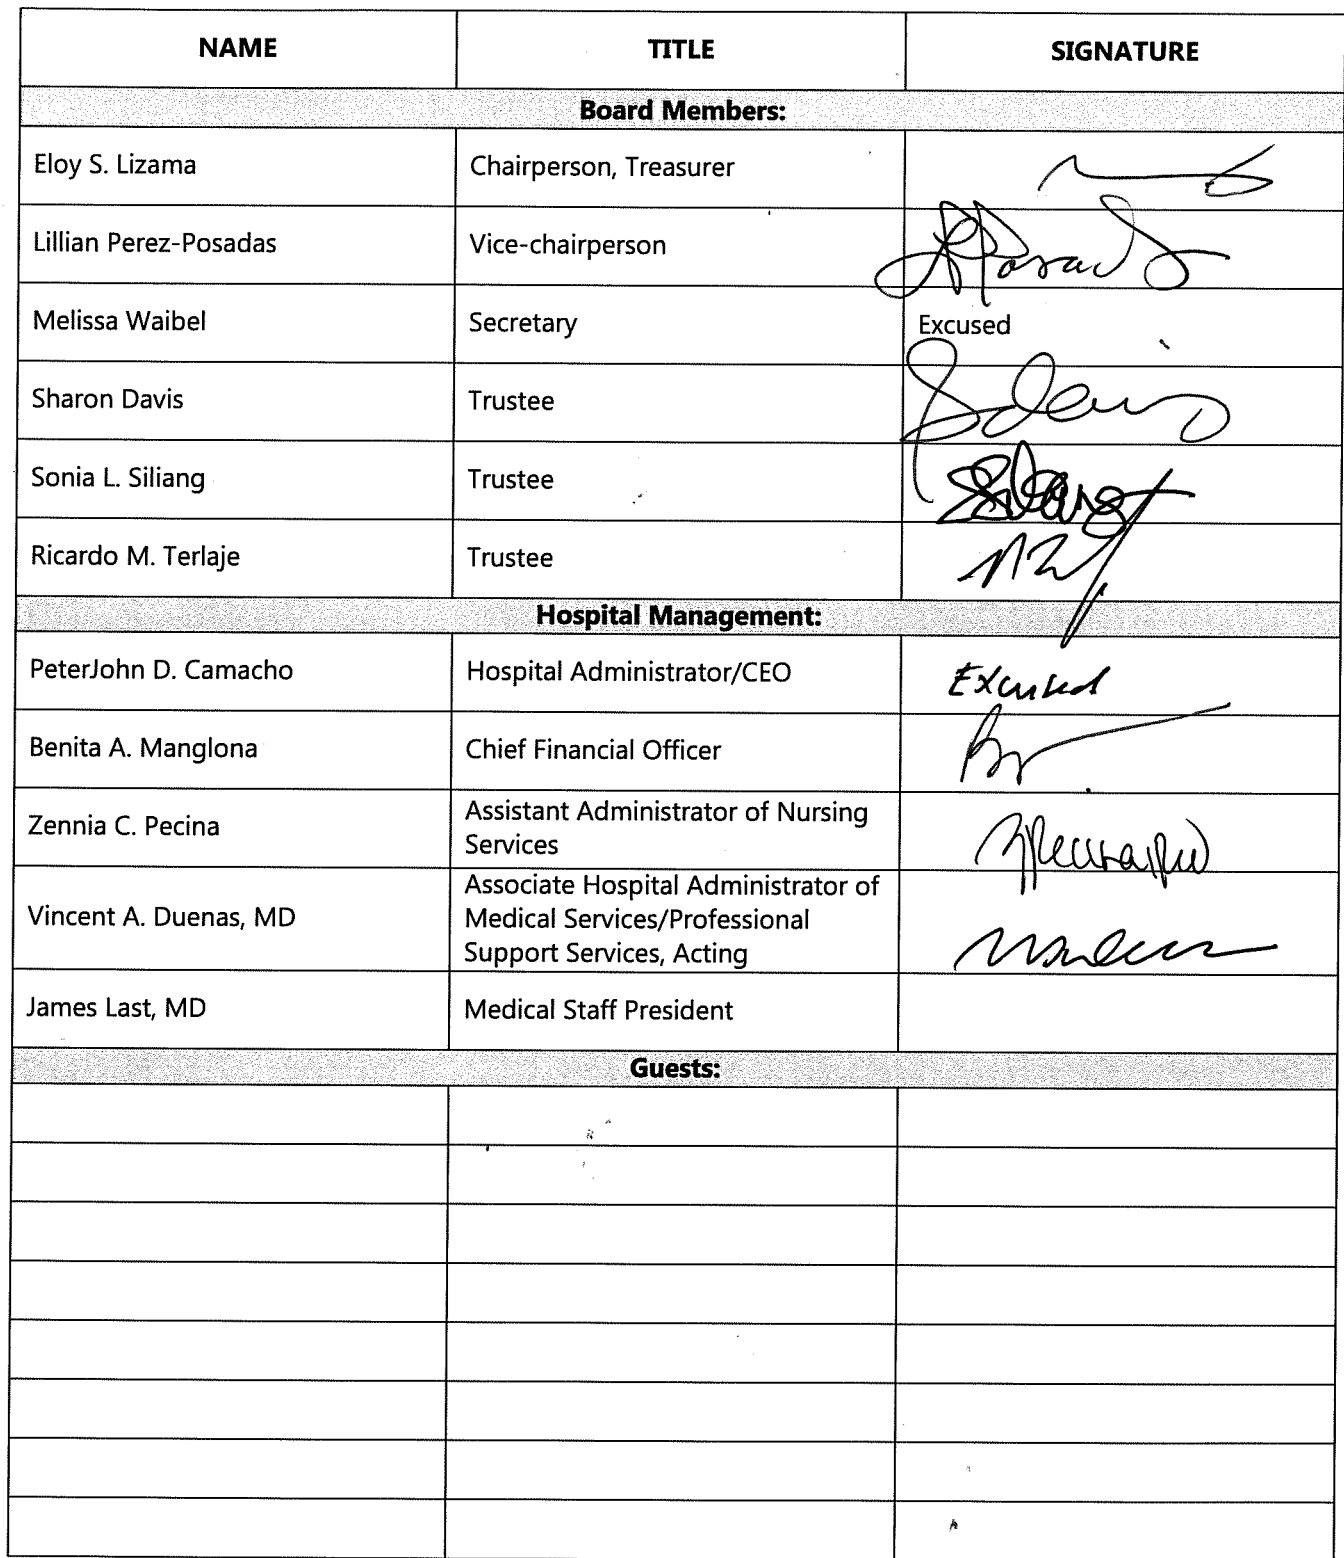 NAME TITLE SIGNATURE
Board Members:
Eloy S. Lizama Chairperson, Treasurer
Lillian Perez-Posadas Vice-chairperson
Melissa Waibel Secretary Excused
Sharon Davis Trustee
Sonia L. Siliang Trustee
Ricardo M. Terlaje Trustee
Hospital Management:
PeterJohn D. Camacho Hospital Administrator/CEO Excused
Benita A. Manglona Chief Financial Officer
Zennia C. Pecina Assistant Administrator of Nursing
Services
Vincent A. Duenas, MD Associate Hospital Administrator of
Medical Services/Professional
Support Services, Acting
James Last, MD Medical Staff President
Guests: